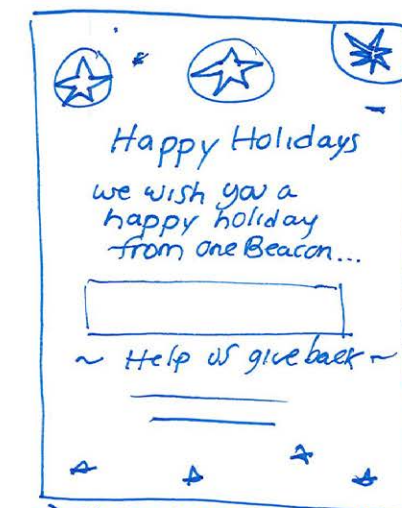 Happy Holidays
we wish you a
happy holiday
from one Beacon...
~ Help us give back ~